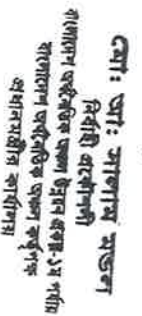 মোঃ আঃ সালাম মন্ডল
নির্বাহী প্রকৌশলী
বাংলাদেশ অর্থনৈতিক অঞ্চল উন্নয়ন প্রকল্প-১ম পর্যায়
বাংলাদেশ অর্থনৈতিক অঞ্চল কর্তৃপক্ষ
প্রধানমন্ত্রীর কার্যালয়